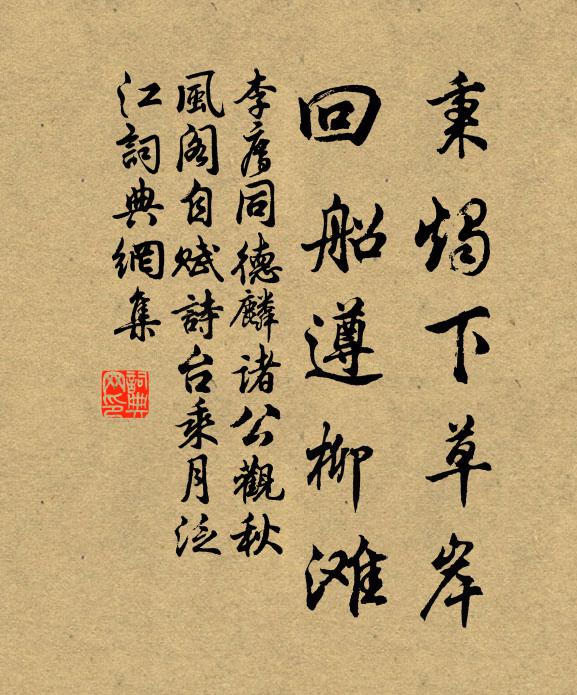 秉燭下草岸
回船遵柳滩
李廌同德麟諸公觀秋
風閣自賦詩台乘月泛
江詞典網集
詞典
网印